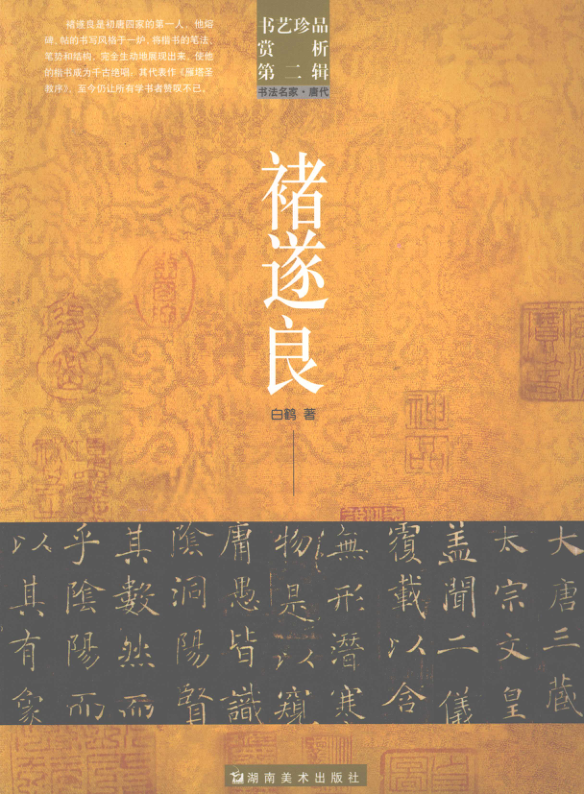 褚遂良是初唐四家的第一人,他熔
碑、帖的书写风格于一炉,将楷书的笔法、
笔势和结构,完全生动地展现出来,使他
的楷书成为千古绝唱。其代表作《雁塔圣
教序》,至今仍让所有学书者赞叹不已。
书艺珍品
赏析
第二辑
书法名家·唐代
褚遂良
白鹤 著
大唐三藏
太宗文皇
盖聞二儀
覆載以含
無形潛寒
物是以窺
庸愚皆識
陰洞陽賢
其數然而
乎陰陽而
以其有象
湖南美术出版社
神品